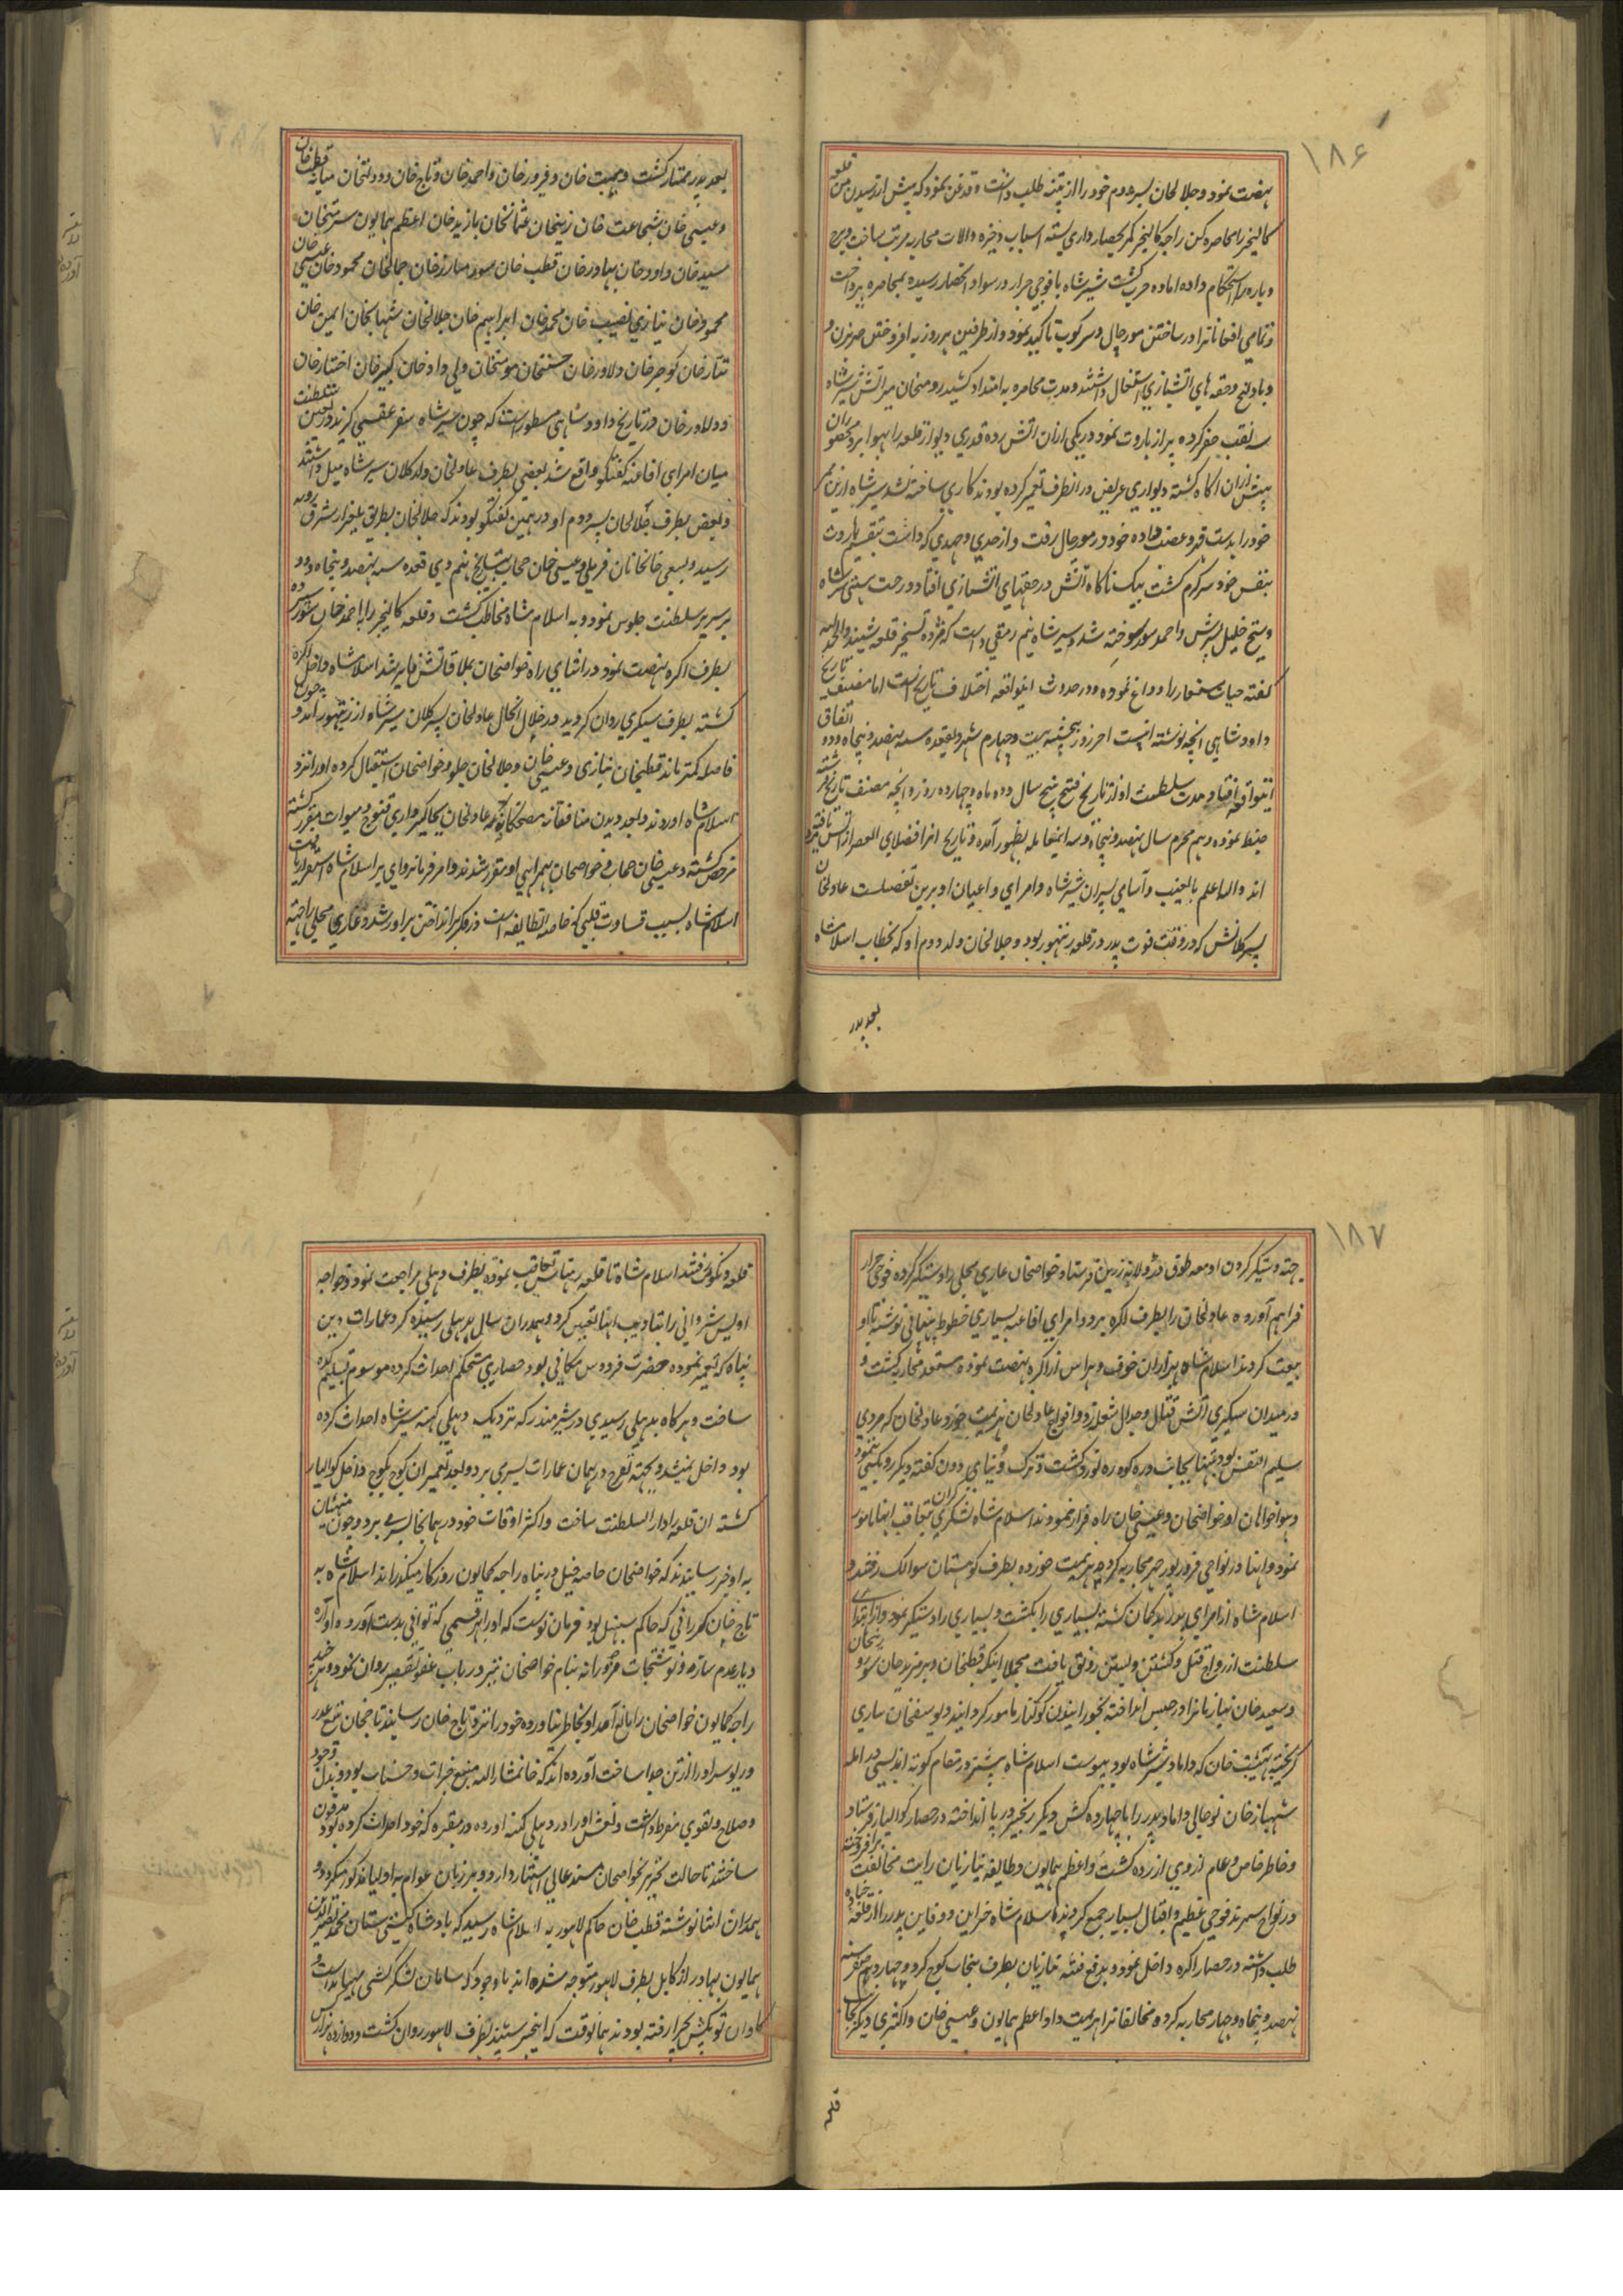 ۱۸۶
نهضت نمود و جلالخان پسر دوم خود را از پتنه طلب داشت و قدغن نمود که پیش از رسیدن من قلعه
کالنجر را محاصره کن راجه کالنجر کمر بحصارداری بسته اسباب ذخیره و آلات محاربه مرتب ساخت و برج
و باره را استحکام داده آماده حرب گشت شیرشاه با فوجی جرار در سواد آنحصار رسیده بمحاصره پرداخت
و تمامی افغانانرا در ساختن مورچال و سرکوب تاکید نمود و از طرفین هر روز به افروختن و
و بادلیج و حقه های آتشبازی اشتغال داشتند و مدت محاصره به امتداد کشید رومیخان میر آتش شیرشاه
سه نقب حفر کرده پر از باروت نمود و در یکی از آن آتش برده قدری دیوار قلعه را بهوا برد محصوران
پیش از آن آگاه گشته دیواری عریض در آنطرف تعمیر کرده بودند کاری ساخته نشد شیرشاه ازین ممر
خود را بدست قهر و غضب داده خود در مورچال رفت و از جدی و جهدی که داشت بتقسیم باروت
بنفس خود سرگرم گشت بیک ناگاه آتش در حقهای آتشبازی افتاد و رخت هستی شیرشاه
و شیخ خلیل پیرش و احمد سور سوخته شد و شیرشاه نیم رمقی داشت که مژده تسخیر قلعه شنید و الحمد لله
گفته حیات مستعار را وداع نموده و در حدوث اینواقعه اختلاف تاریخ است اما مصنف تاریخ
داودشاهی آنچه نوشته اینست آخر روز پنجشنبه بیست و چهارم شهر ذیقعده سنه نهصد و پنجاه و دو اتفاق
اینواقعه افتاد و مدت سلطنت او از تاریخ فتح پنج سال و دو ماه و چهارده روز و آنچه مصنف تاریخ
ضبط نموده دهم محرم سال نهصد و پنجاه و سه اینمعامله بظهور آمده و تاریخ آنرا فضلای العصر از آتش مرد یافته
اند والله اعلم بالغیب و اسامی پسران شیرشاه و امرای و اعیان او برین تفصیلست عادلخان
پسر کلانش که در وقت فوت پدر در قلعه رنتهور بود و جلالخان ولد دوم او که بخطاب اسلامشاه
بعد پدر
بعد پدر ممتاز گشت و هیبت خان و فیروزخان و احمدخان و تاج خان و دولتخان میانه قطب خان
و عیسی خان شجاعت خان زینخان عثمانخان بازیدخان اعظم همایون سرمستخان
سیدخان و داودخان بهادرخان قطب خان سور مبارزخان جمالخان محمودخان عیسی خان
محمودخان نیازی نصیب خان محمدخان ابراهیم خان جلالخان شهابخان امین خان
تتارخان گوجرخان دلاورخان حسنخان مومنخان ولی دادخان کبیرخان اختیارخان
و دلاورخان در تاریخ داودشاهی مسطور است که چون شیرشاه سفر عقبی گزید در تعین سلطنت
میان امرای افاغنه گفتگو واقع شد بعضی بطرف عادلخان ولد کلان شیرشاه میل داشتند
و بعض بطرف جلالخان پسر دوم او در همین گفتگو بودند که جلالخان بطریق یلغار از شرق رویه
رسید و بسعی خانخانان فرملی و عیسی خان حجاب بتاریخ پنجم ذی قعده سنه نهصد و پنجاه و دو
بر سریر سلطنت جلوس نمود و به اسلام شاه مخاطب گشت و قلعه کالنجر را با احمدخان سور سپرده
بطرف اگره نهضت نمود در اثنای راه خواصخان بملاقاتش فایز شد اسلامشاه داخل اگره
گشته بطرف سیکری روان گردید در خلال الحال عادلخان پسر کلان شیرشاه از رنتهور آمد و چون
فاصله کمتر ماند قطبخان نیازی و عیسی خان و جلالخان جلو و خواصخان استقبال کرده او را نزد
اسلامشاه آوردند و بعد دیدن منافقانه عادلخان بجاگیرداری قنوج و میوات مقرر گشته
مرخص گشته و عیسی خان حجاب و خواصخان بهمراهی او مقرر شدند و امر فرمانروای بر اسلام شاه استقرار یافت
اسلامشاه بسبب قساوت قلبی که خاصه الطایفه است در فکر برانداختن برادر شد و غازی محلی را جهته
۱۸۷
جهته دستگیر کردن او معه طوق و زولانه زرین فرستاد و خواصخان غازی محلی را دستگیر کرده فوجی جرار
فراهم آورده عادلخان را بطرف اگره برد و امرای افاغنه بسیاری خطوط پنهانی نوشته با او
بیعت کردند اسلامشاه هزاران خوف و هراس از اگره نهضت نموده مستعد محاربه گشت و
در میدان سیکری آتش قتال و جدال شعله زد و افواج عادلخان هزیمت خورد و عادلخان که مردی
سلیم النفس بود تنها بجانب دره کوه ره نورد گشت و ترک دنیای دون گفته دیگر رو بکسی ننمود
و هواخواهان او خواصخان و عیسی خان راه فرار نمودند اسلامشاه لشکری گران بتعاقب اینها مامور
نمود و اینها در نواحی فیروزپور جهر محاربه کرده هزیمت خورده بطرف کوهستان سوالک رفتند و
اسلام شاه از امرای پدر بدگمان گشته بسیاری را بکشت و بسیاری را دستگیر نمود و از ابتدای
سلطنت از رواج قتل و کشتن و بستن رونق یافت مجملا اینکه قطبخان و برمزیدخان سور و
و سعیدخان نیازیانرا در حبس انداخته بخورانیدن کوکنار مامور گردانید و یوسفخان ساری
گریخته هیئت خان که داماد شیرشاه بود پیوست اسلام شاه پیشتر در مقام کوته اندیشی در آمده
شهبازخان نوحانی داماد پدر را با چهارده کس دیگر زنجیر در پا انداخته در حصار گوالیار فرستاد
و خاطر خاص و عام از وی آزرده گشت و اعظم همایون و طایفه نیازیان رایت مخالفت برافروخته
در نواح سرهند فوجی عظیم و اقبال بسیار جمع کردند اسلام شاه خزاین و دفاین پدر را از قلعه
طلب داشته در حصار اگره داخل نمود و بدفع فتنه نیازیان بطرف پنجاب کوچ کرد و چهاردهم صفر سنه
نهصد و پنجاه و چهار محاربه کرده مخالفانرا هزیمت داد اعظم همایون و عیسی خان و اکثری دیگر بجانب
قلعه
قلعه رفتند اسلام شاه تا قلعه رهتاس تعاقب نموده بطرف دهلی مراجعت نمود و خواجه
اویس شروانی را بتادیب اینها تعیین کرد و همدران سال بدهلی رسیده گرد عمارات دین
پناه که تعمیر نموده حضرت فردوس مکانی بود حصاری مستحکم احداث کرده موسوم به سلیم گده
ساخت و هر گاه بدهلی رسیدی در شیرمندر که نزدیک دهلی کهنه شیرشاه احداث کرده
بود داخل نمیشد و بجهته تفرج در همان عمارات بسر می برد و بعد تعمیر آن کوچ بکوچ داخل گوالیار
گشته آن قلعه را دارالسلطنت ساخت و اکثر اوقات خود در همانجا بسر می برد و چون منهیان
به او خبر رسانیدند که خواصخان خاصه خیل در پناه راجه کمایون روزگار میگذراند اسلامشاه به
تاج خان کررانی که حاکم سنبل بود فرمان نوشت که او را بهر قسمی که توانی بدست آورده آواره
دیار عدم سازد و نوشتجات مزورانه بنام خواصخان نیز در باب عفو تقصیر روان نمود و هر چند
راجه کمایون خواصخان را مانع آمد او بخاطر نیاورده خود را نزد تاج خان رسانید تاجخان تیغ غدر
در او سر او را از تن جدا ساخت آورده اند که خانمشارالیه منبع خیرات و حسنات بود و بذل وجود
و صلاح و تقوی مفرط داشت و نعش او را در دهلی کهنه آورده در مقبره که خود احداث کرده بود مدفون
ساختند تا حالت تحریر بخواصخان مسند عالی اشتهار دارد و بر زبان عوام به اولیا مذکور میگردد و
همدران اثنا نوشته قطب خان حاکم لاهور به اسلامشاه رسید که بادشاه گیتی ستان نصیرالدین محمد
همایون بهادر از کابل بطرف لاهور متوجه شده اند با وجود که سامان لشکرکشی مهیا نداشت و
گاوان توپکش بچرا رفته بودند همانوقت که اینخبر شنید بطرف لاهور روان گشت و دوازده هزار کس